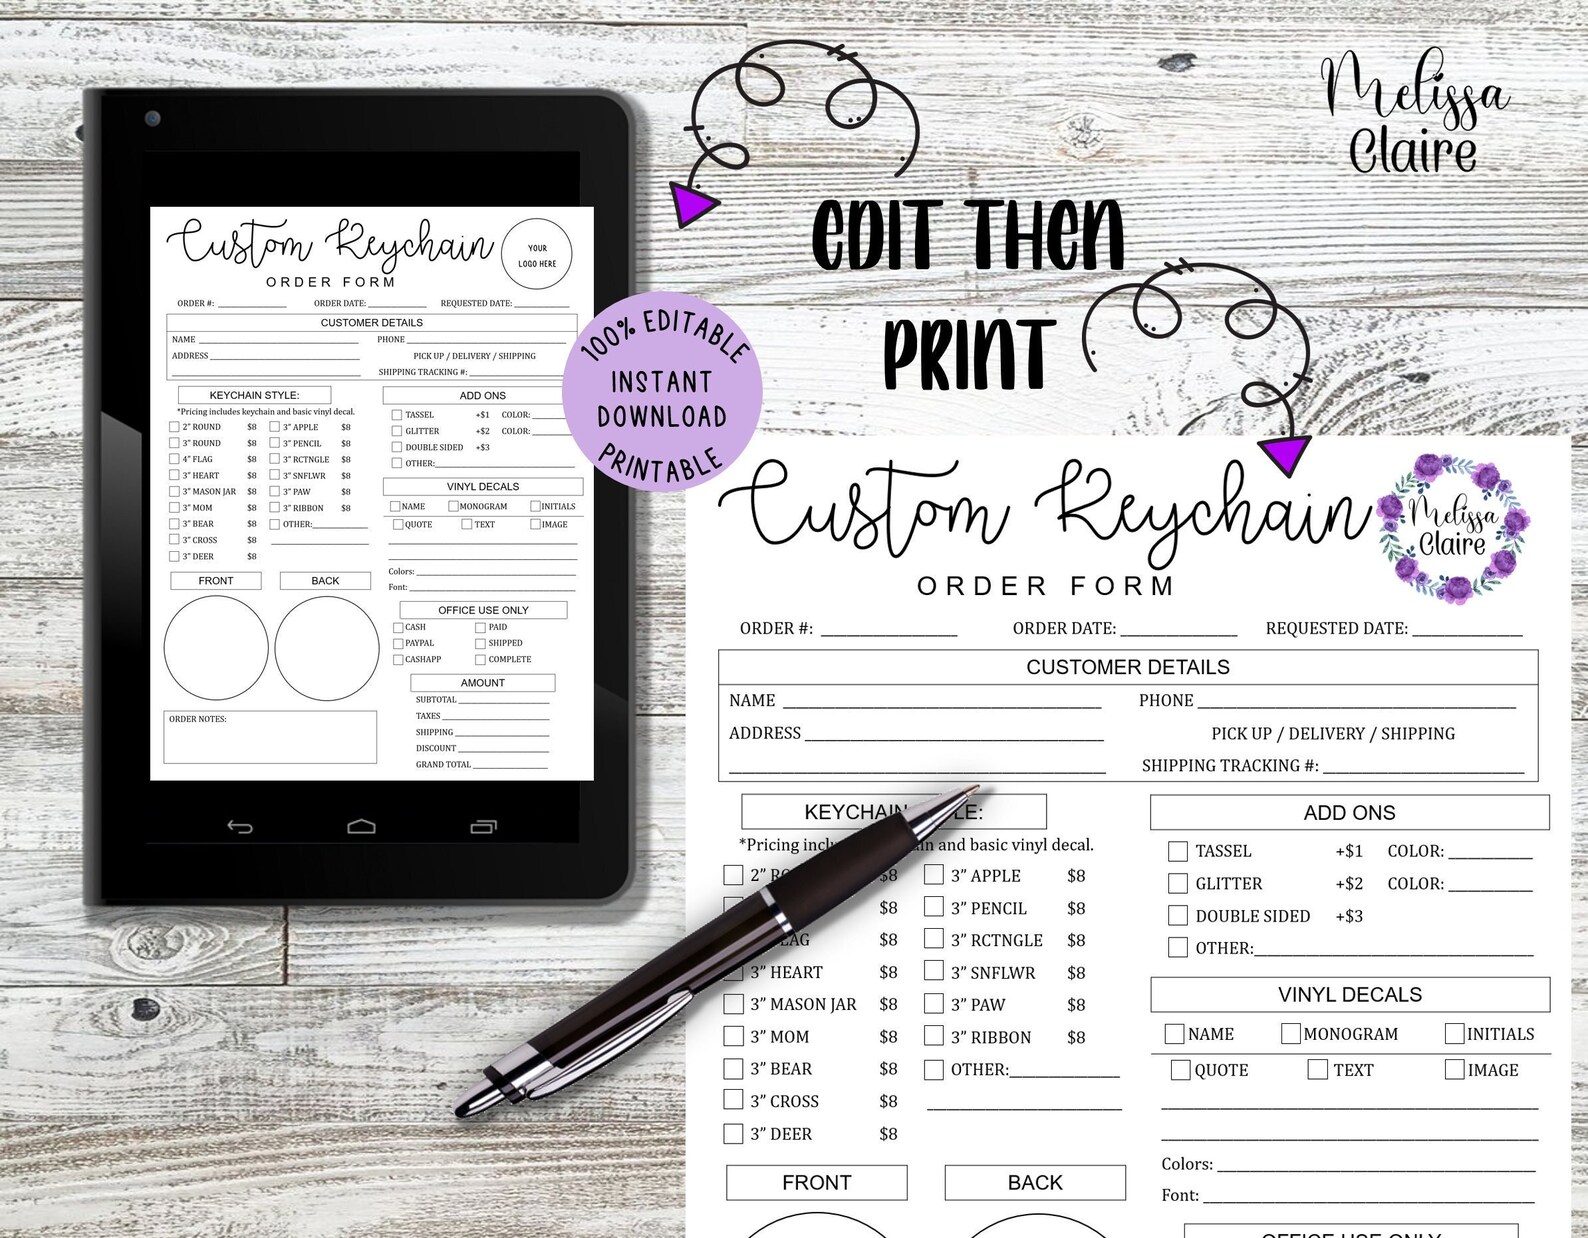 Melissa
Claire
EDIT THEN
PRINT
100% EDITABLE
INSTANT
DOWNLOAD
PRINTABLE
Custom Keychain
YOUR
LOGO HERE
ORDER FORM
ORDER #: ORDER DATE: REQUESTED DATE:
CUSTOMER DETAILS
NAME PHONE
ADDRESS PICK UP / DELIVERY / SHIPPING
SHIPPING TRACKING #:
KEYCHAIN STYLE:
*Pricing includes keychain and basic vinyl decal.
2" ROUND $8 3" APPLE $8
3" ROUND $8 3" PENCIL $8
4" FLAG $8 3" RCTNGLE $8
3" HEART $8 3" SNFLWR $8
3" MASON JAR $8 3" PAW $8
3" MOM $8 3" RIBBON $8
3" BEAR $8 OTHER:
3" CROSS $8
3" DEER $8
ADD ONS
TASSEL +$1 COLOR:
GLITTER +$2 COLOR:
DOUBLE SIDED +$3
OTHER:
VINYL DECALS
NAME MONOGRAM INITIALS
QUOTE TEXT IMAGE
Colors:
Font:
FRONT BACK
OFFICE USE ONLY
CASH PAID
PAYPAL SHIPPED
CASHAPP COMPLETE
AMOUNT
SUBTOTAL
TAXES
SHIPPING
DISCOUNT
GRAND TOTAL
ORDER NOTES:
Custom Keychain
Melissa
Claire
ORDER FORM
ORDER #: ORDER DATE: REQUESTED DATE:
CUSTOMER DETAILS
NAME PHONE
ADDRESS PICK UP / DELIVERY / SHIPPING
SHIPPING TRACKING #:
KEYCHAIN LE:
*Pricing inclu in and basic vinyl decal.
2" RO $8 3" APPLE $8
$8 3" PENCIL $8
LAG $8 3" RCTNGLE $8
3" HEART $8 3" SNFLWR $8
3" MASON JAR $8 3" PAW $8
3" MOM $8 3" RIBBON $8
3" BEAR $8 OTHER:
3" CROSS $8
3" DEER $8
ADD ONS
TASSEL +$1 COLOR:
GLITTER +$2 COLOR:
DOUBLE SIDED +$3
OTHER:
VINYL DECALS
NAME MONOGRAM INITIALS
QUOTE TEXT IMAGE
Colors:
Font:
FRONT BACK
OFFICE USE ONLY